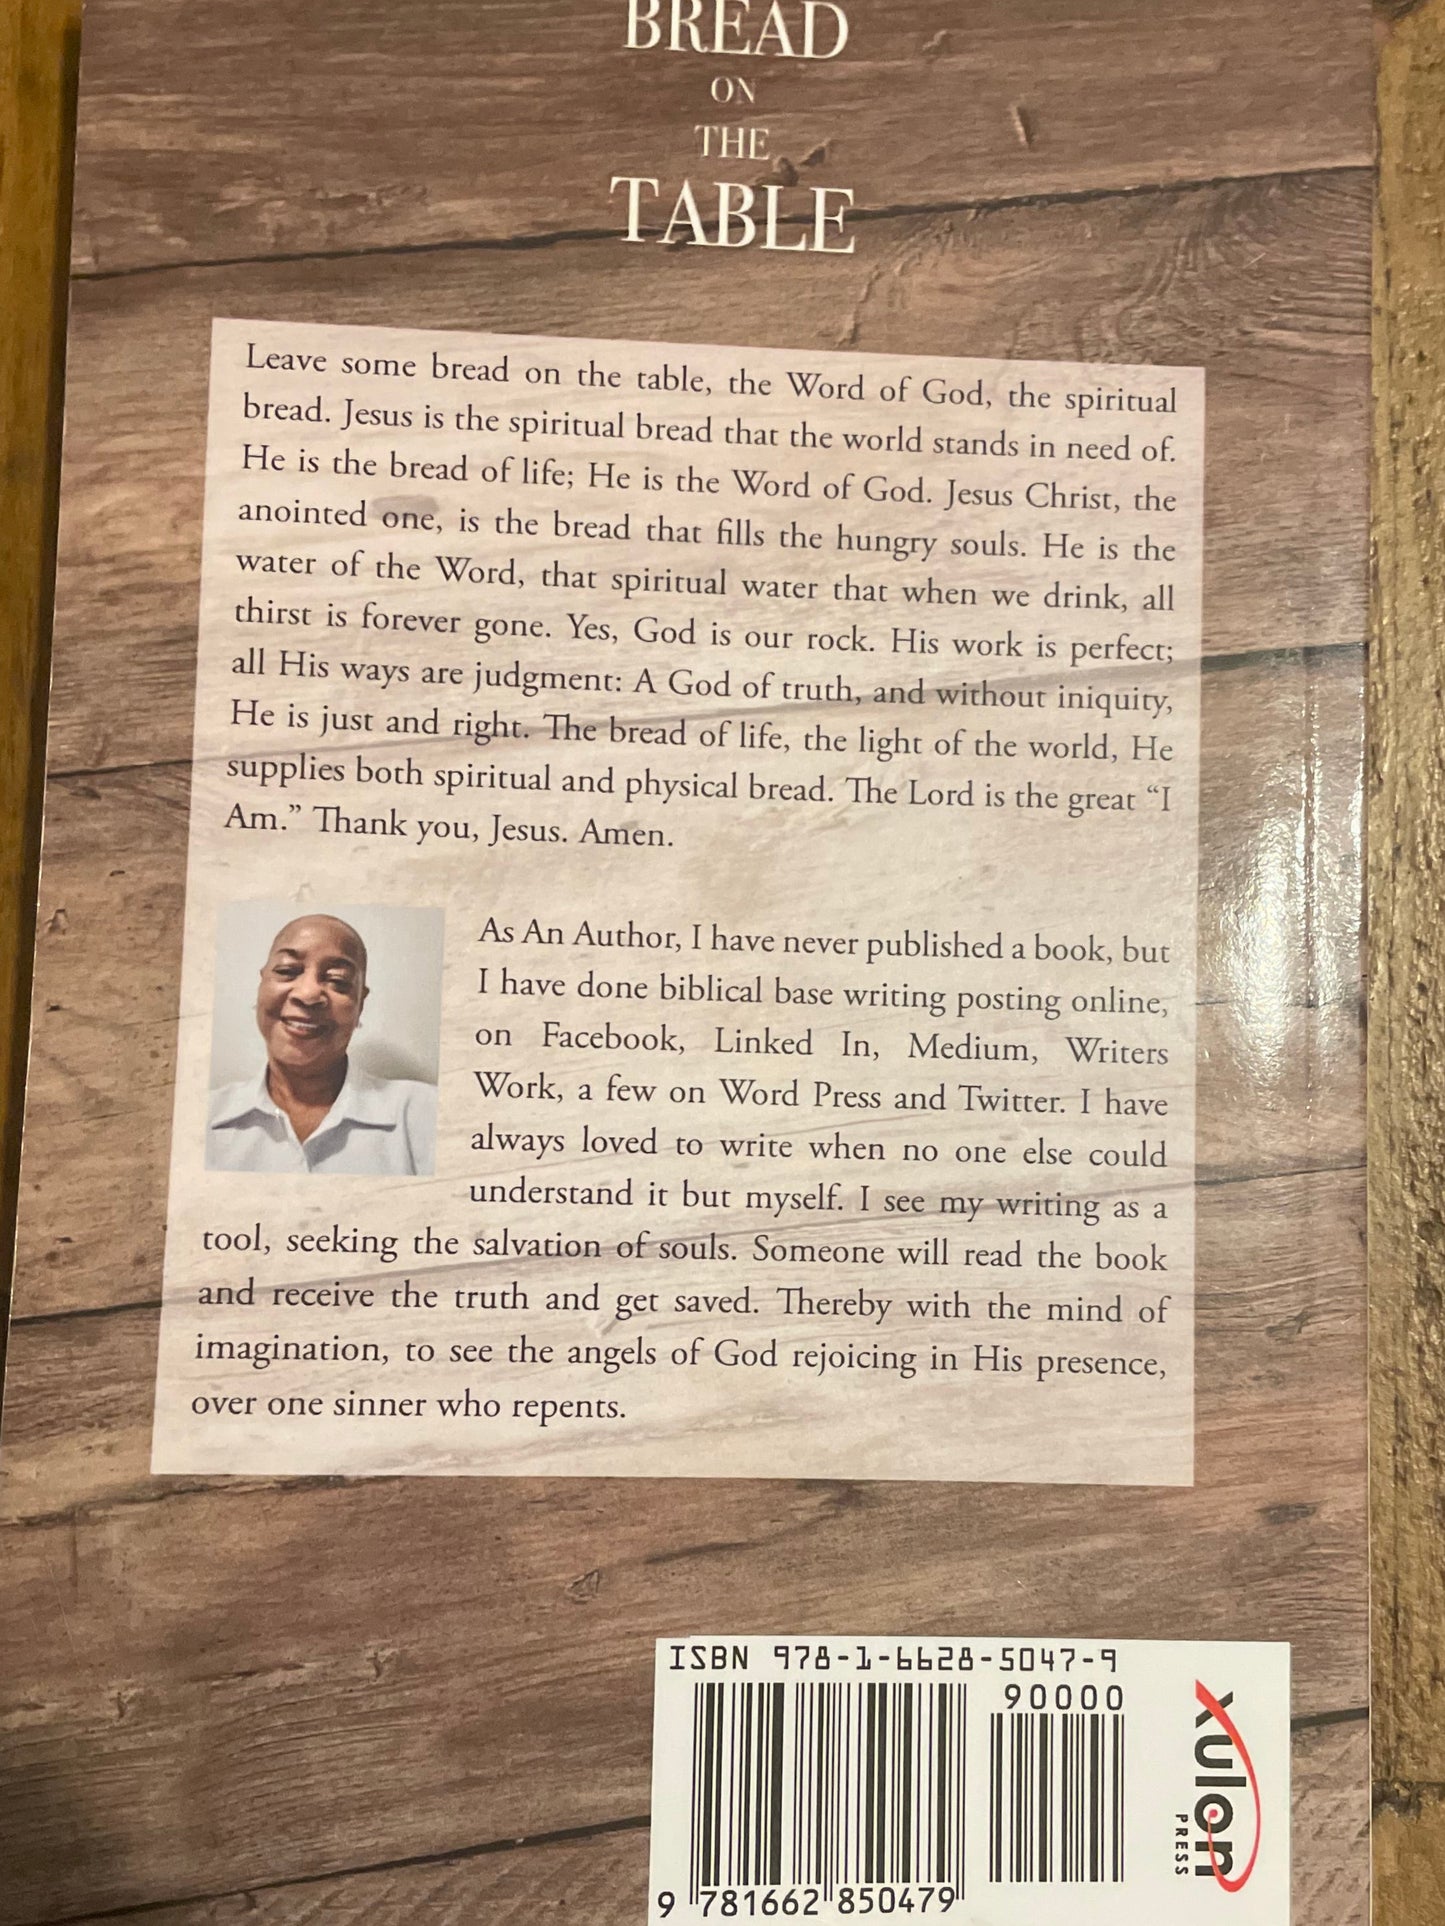 BREAD
ON
THE
TABLE
Leave some bread on the table, the Word of God, the spiritual
bread. Jesus is the spiritual bread that the world stands in need of.
He is the bread of life; He is the Word of God. Jesus Christ, the
anointed one, is the bread that fills the hungry souls. He is the
water of the Word, that spiritual water that when we drink, all
thirst is forever gone. Yes, God is our rock. His work is perfect;
all His ways are judgment: A God of truth, and without iniquity,
He is just and right. The bread of life, the light of the world, He
supplies both spiritual and physical bread. The Lord is the great “I
Am.” Thank you, Jesus. Amen.
As An Author, I have never published a book, but
I have done biblical base writing posting online,
on Facebook, Linked In, Medium, Writers
Work, a few on Word Press and Twitter. I have
always loved to write when no one else could
understand it but myself. I see my writing as a
tool, seeking the salvation of souls. Someone will read the book
and receive the truth and get saved. Thereby with the mind of
imagination, to see the angels of God rejoicing in His presence,
over one sinner who repents.
ISBN 978-1-6628-5047-9
90000
9 781662 850479
xulon
PRESS